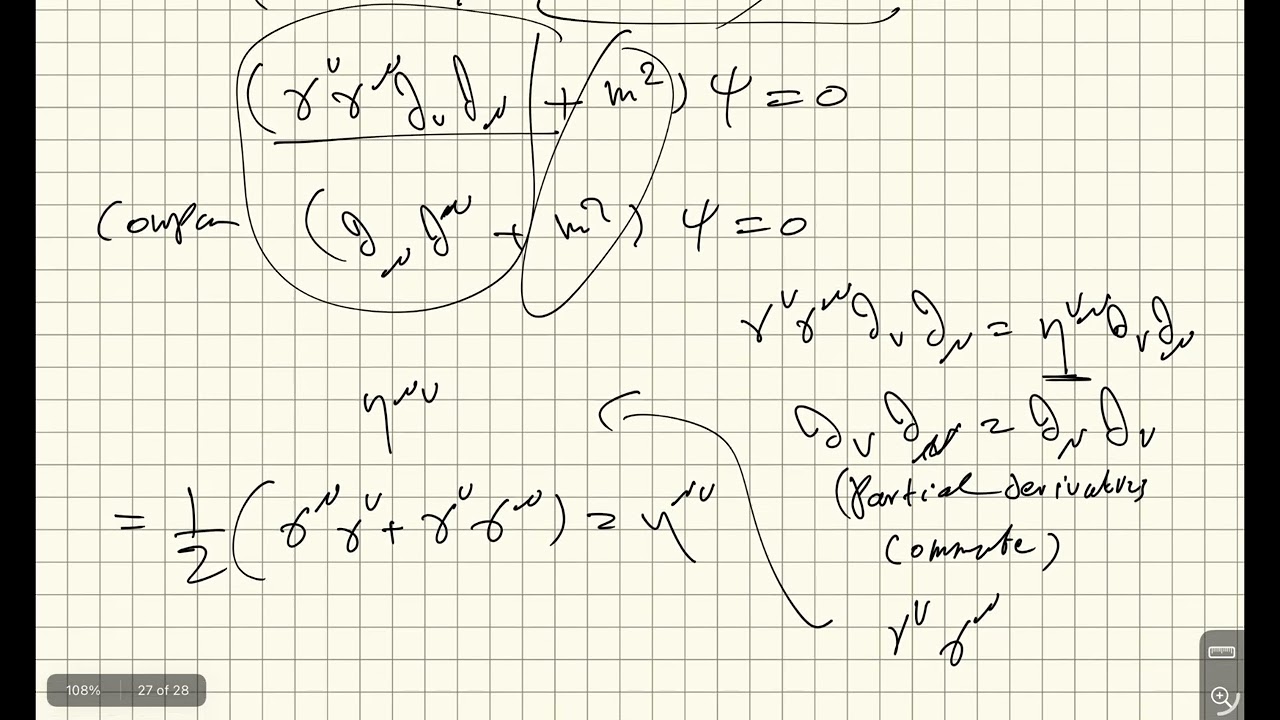 (γ^ν γ^μ ∂_ν ∂_μ + m²) Ψ = 0
Compare (∂_μ ∂^μ + m²) Ψ = 0
γ^ν γ^μ ∂_ν ∂_μ = η^{νμ} ∂_ν ∂_μ
η^{μν}
∂_ν ∂_μ = ∂_μ ∂_ν
(partial derivatives
commute)
= 1/2 (γ^μ γ^ν + γ^ν γ^μ) = η^{μν}
γ^ν γ^μ
108% 27 of 28